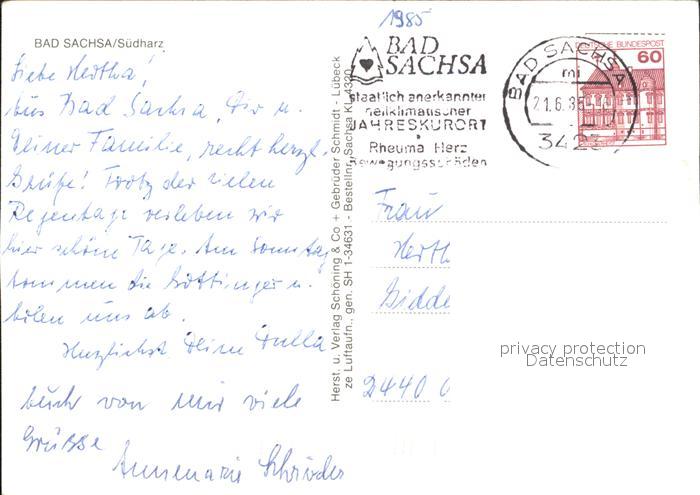 1985
BAD SACHSA/Südharz
Liebe Hertha!
Aus Bad Sachsa, Dir u.
Deiner Familie, recht herzl.
Grüße! Trotz der vielen
Regentage verleben wir
hier schöne Tage. Am Sonntag
kommen die Göttinger u.
holen uns ab.
Herzlichst Deine Dulla
Auch von mir viele
Grüsse
Annemarie Schröder
Herst. u. Verlag Schöning & Co + Gebrüder Schmidt - Lübeck
ze Luftaufn., gen. SH 1-34631 - Bestellnr. Sachsa KL 4320
BAD
SACHSA
staatlich anerkannter
heilklimatischer
JAHRESKURORT
Rheuma Herz
Bewegungsschäden
BAD SACHSA
ml
21.6.85
3423
DEUTSCHE BUNDESPOST
60
Frau
Herth
Gidde
2440
privacy protection
Datenschutz